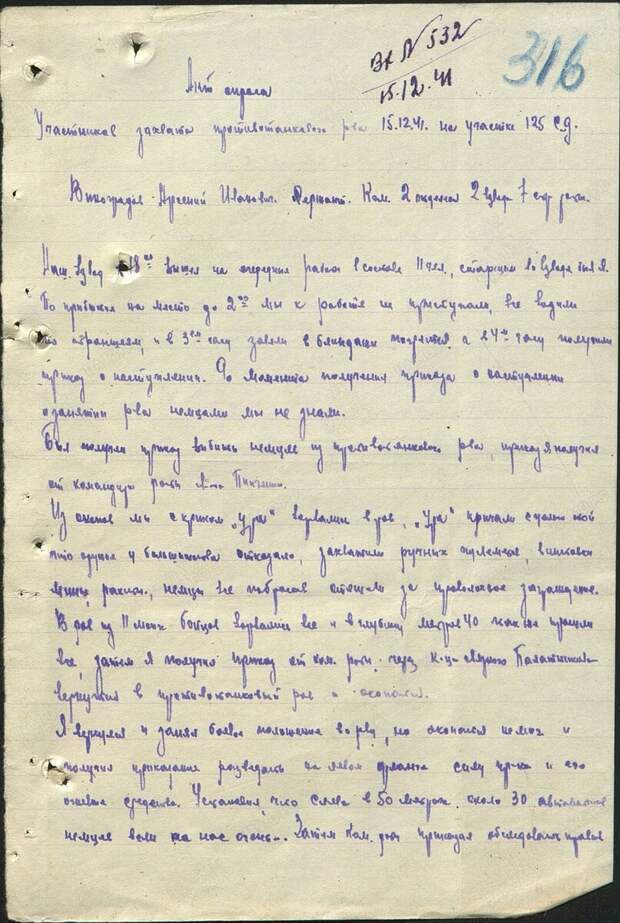 Вх № 532
316
15.12.41
Акт опроса
Участников захвата противотанкового рва 15.12.41. на участке 125 С.Д.
Виноградов Арсений Иванович. Сержант. Ком. 2 отделен 2 взвода 7 стр роты.
Наш взвод 18 вышел на очередные работы в составе 11 чел, старшим во взводе был я.
По прибытии на место до 2 мы к работе не приступали, все водили
по траншеям, и в 3 часу завели в блиндаж погреться а в 4 часу получили
приказ о наступлении. До момента получения приказа о наступлении
о занятии рва немцами мы не знали.
Был получен приказ выбить немцев из противотанкового рва, приказ я получил
от командира роты
Из окопов мы с криком „ура" ворвались в ров, „ура" кричали
что оружие у большинства отказало, захватили ручных пулеметов, винтовки
мины, ракеты, немцы все побросав отошли за проволочное заграждение.
В ров из 11 моих бойцов ворвались все и в глубину метров 40 прошли
все, затем я получил приказ от ком. роты через связного
вернуться в противотанковый ров и окопаться.
Я вернулся и занял боевое положение во рву, но окопаться не мог и
получил приказание разведать на левом фланге силу пр-ка и его
огневые средства. Установил, что слева в 50 метрах около 30 автоматчиков
немцев вели на нас огонь. Затем ком. роты приказал обследовать правый